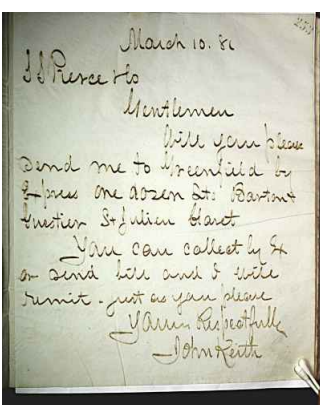 252
March 10. 81
S S Pierce & Co
Gentlemen
Will you please
Send me to Greenfield by
Express one dozen Qts Barton &
Guestier St Julien Claret
You can collect by Ex
or send bill and I will
remit - just as you please
Yours Respectfully
John Keith